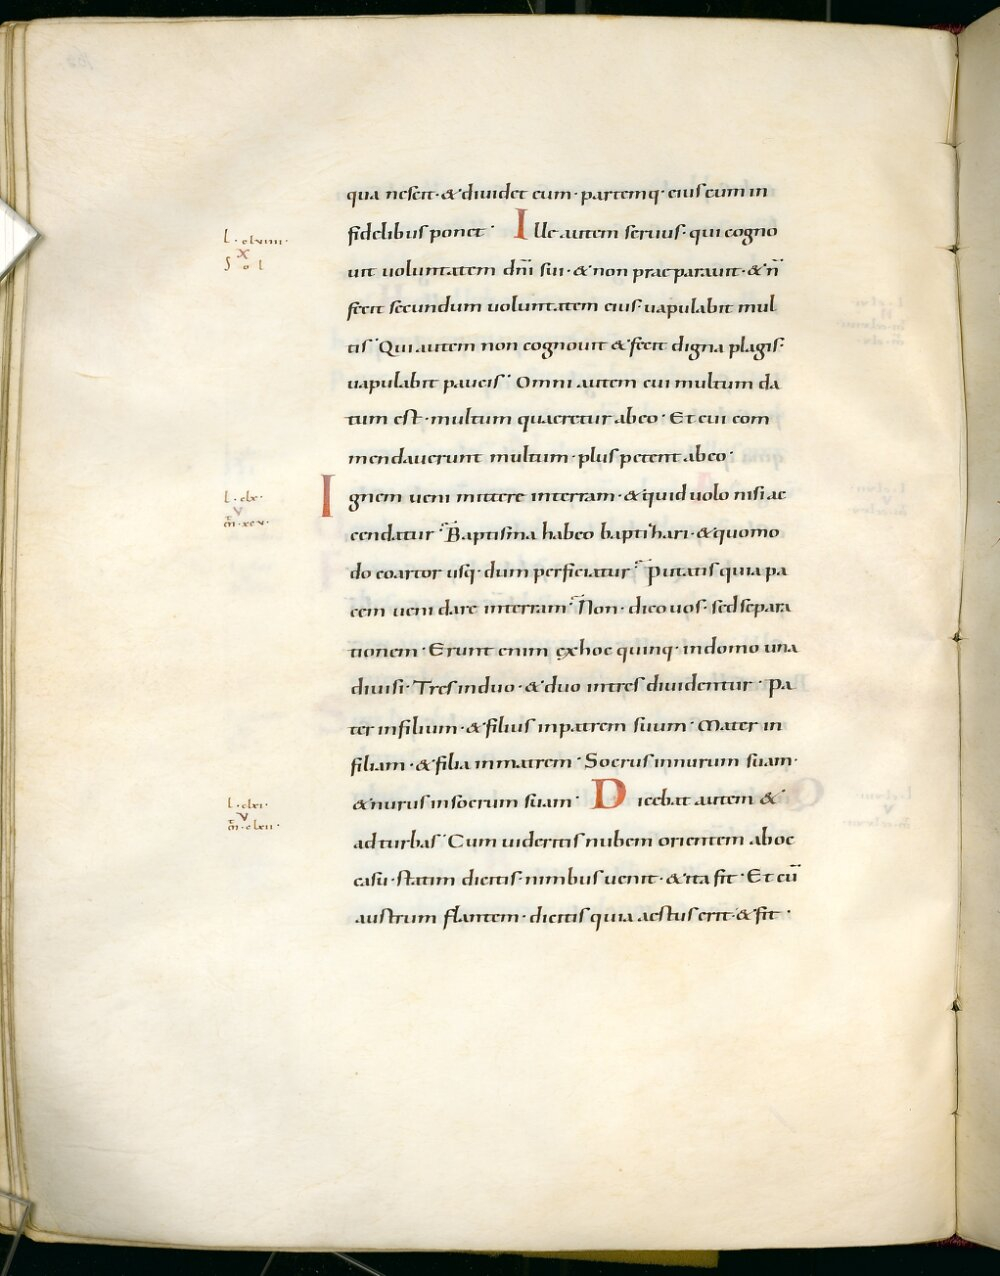 qua nescit · & diuidet eum · partemq · eius cum in
fidelibus ponet · Ille autem seruus · qui cogno
L · clviiii ·
X
Sol
uit uoluntatem dñi sui · & non praeparauit · & ñ
fecit secundum uoluntatem eius · uapulabit mul
tis · Qui autem non cognouit & fecit digna plagis ·
uapulabit paucis · Omni autem cui multum da
tum est · multum quaeretur ab eo · Et cui com
mendauerunt multum · plus petent ab eo ·
L · clx ·
V
m̄ · xcv ·
Ignem ueni mittere interram · & quid uolo nisi ac
cendatur · Baptisma habeo baptizari · & quomo
do coartor usq · dum perficiatur · Putatis quia pa
cem ueni dare interram · Non · dico uos · sed separa
tionem · Erunt enim exhoc quinq · indomo una
diuisi · Tres induo · & duo intres diuidentur · Pa
ter infilium · & filius inpatrem suum · Mater in
filiam · & filia inmatrem · Socrus innurum suam ·
& nurus insocrum suam · Dicebat autem &
L · clxi ·
V
m̄ · clxii ·
ad turbas · Cum uideritis nubem orientem aboc
casu · statim dicitis · nimbus uenit · & ita fit · Et cū
austrum flantem · dicitis quia aestus erit · & fit ·